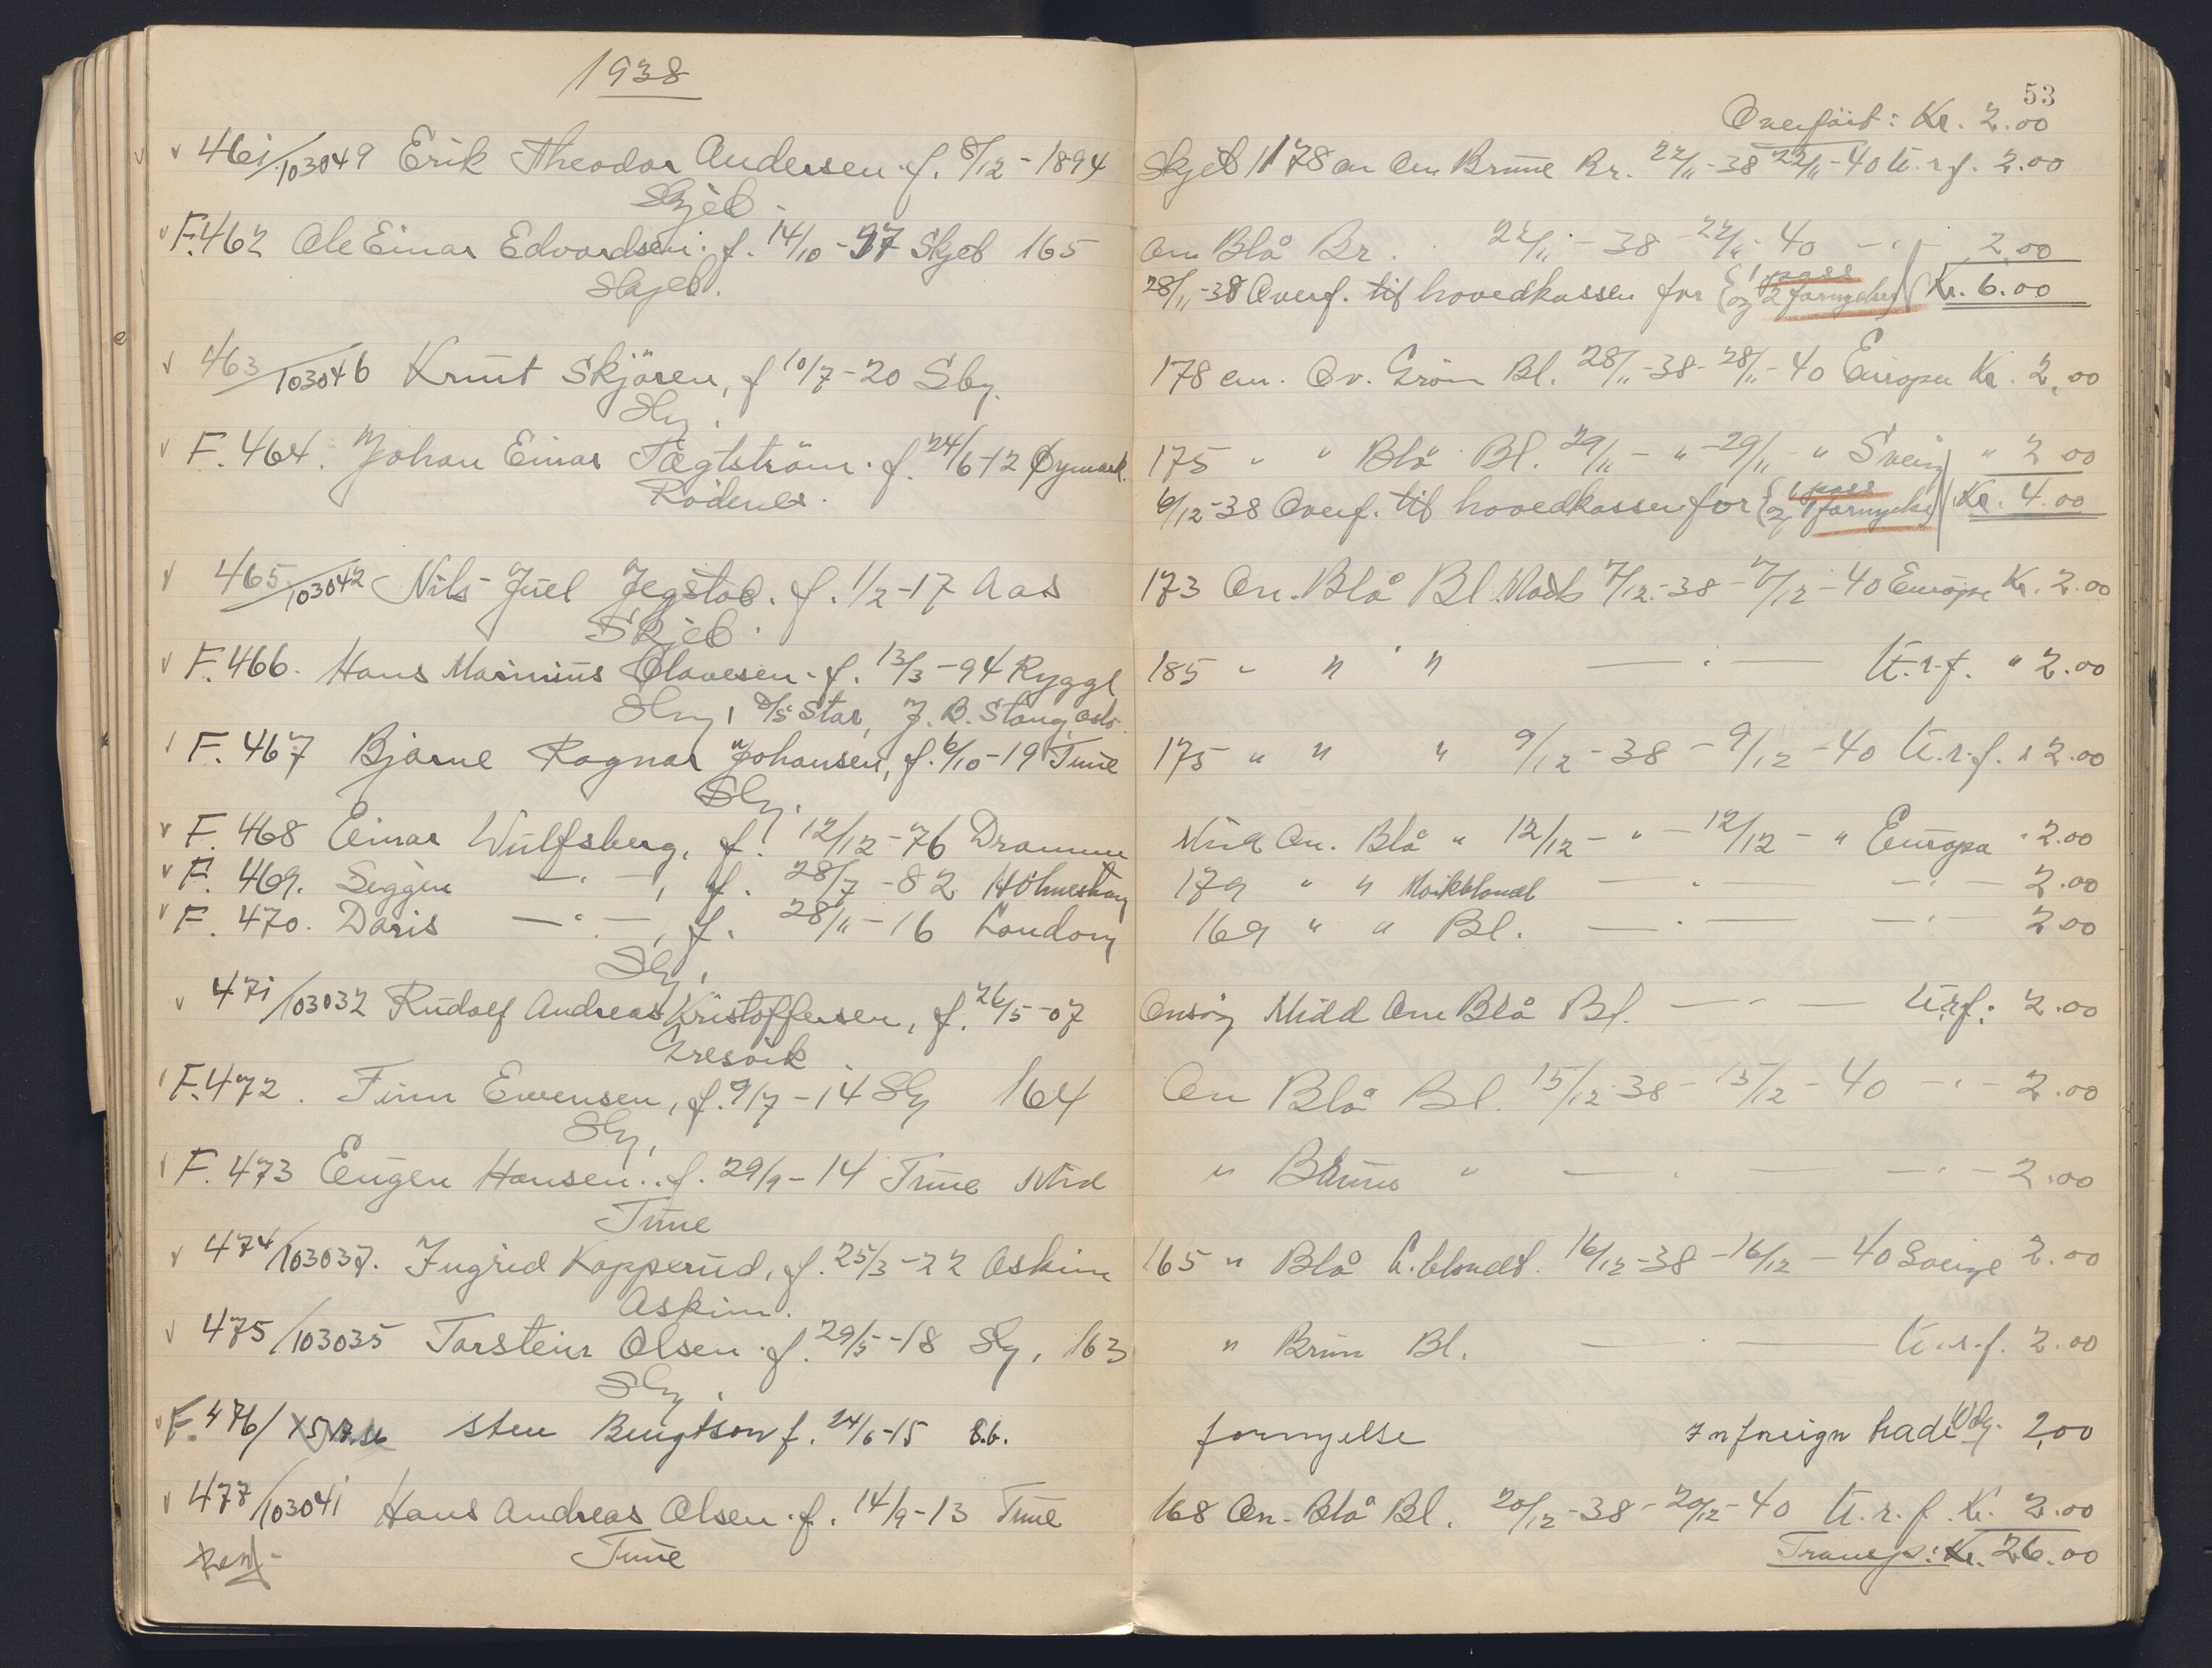 1938
53
Overført: Kr. 2.00
461/103049 Erik Theodor Andersen. f. 8/12-1894 Skjeb 178 cm Ov. Brune Br. 22/11-38 22/11-40 U.r.f. 2.00
Skjeb.
F.462 Ole Einar Edvardsen. f. 14/10-97 Skjeb 165 Ov. Blå Br. 22/11-38-22/11-40 -"- 2.00
Skjeb. 28/11-38 Overf. til hovedkassen for (1 pass og 2 fornyelser) Kr. 6.00
463/103046 Knut Skjören, f 10/7-20 Sby. 178 cm. Ov. Grön Bl. 28/11-38-28/11-40 Europa Kr. 2.00
Sby.
F. 464. Johan Einar Tægtström. f. 24/6-12 Øymark. 175 " " Blå Bl. 29/11-"-29/11-" Sverig " 2 00
Rödenes. 6/12-38 Overf. til hovedkassen for (1 pass og 1 fornyelse) Kr. 4.00
465/103042 Nils Juel Jegstad. f. 1/2-17 Aas 173 Ov. Blå Bl. 7/12-38-7/12-40 Europa Kr. 2.00
Skjeb.
F. 466. Hans Marinius Olavesen. f. 13/3-94 Rygge 185 " " " —"— U.r.f. " 2.00
Sby, D/S Star, J. B. Stang, Oslo.
F. 467 Bjarne Ragnar Johansen, f. 6/10-19 Tune 175 " " " 9/12-38-9/12-40 U.r.f. " 2.00
Sby.
F. 468 Einar Wulfsberg, f. 12/12-76 Dramme Mid Ov. Blå " 12/12-"-12/12-" Europa " 2.00
F. 469. Siggen —"—, f. 28/7-82 Holmestran 179 " " Mørkblondt —"— —"— 2.00
F. 470. Doris —"—, f. 28/11-16 London 169 " " Bl. —"— —"— 2.00
Sby.
471/103032 Rudolf Andreas Kristoffersen, f. 26/5-07 Onsøy Midd Ov. Blå Bl. —"— U.r.f. 2.00
Gresvik
F.472. Finn Evensen, f. 9/7-14 Sby 164 Ov Blå Bl. 15/12-38-15/12-40 -"- 2.00
Sby.
F. 473 Eugen Hansen. f. 29/9-14 Tune Mid " Brune " —"— —"— 2.00
Tune
474/103037. Ingrid Kopperud, f. 25/3-22 Askim 165 " Blå L.blondt. 16/12-38-16/12-40 Sverige 2.00
Askim.
475/103035 Torstein Olsen. f. 29/5-18 Sby, 163 " Brun Bl. —"— U.r.f. 2.00
Sby.
F. 476/ Sten Bengtson f. 24/6-15 S.b. fornyelse In foreign trade 2,00
477/103041 Hans Andreas Olsen. f. 14/9-13 Tune 168 Ov. Blå Bl. 20/12-38-20/12-40 U.r.f. Kr. 2.00
Tune Transp: Kr. 26.00